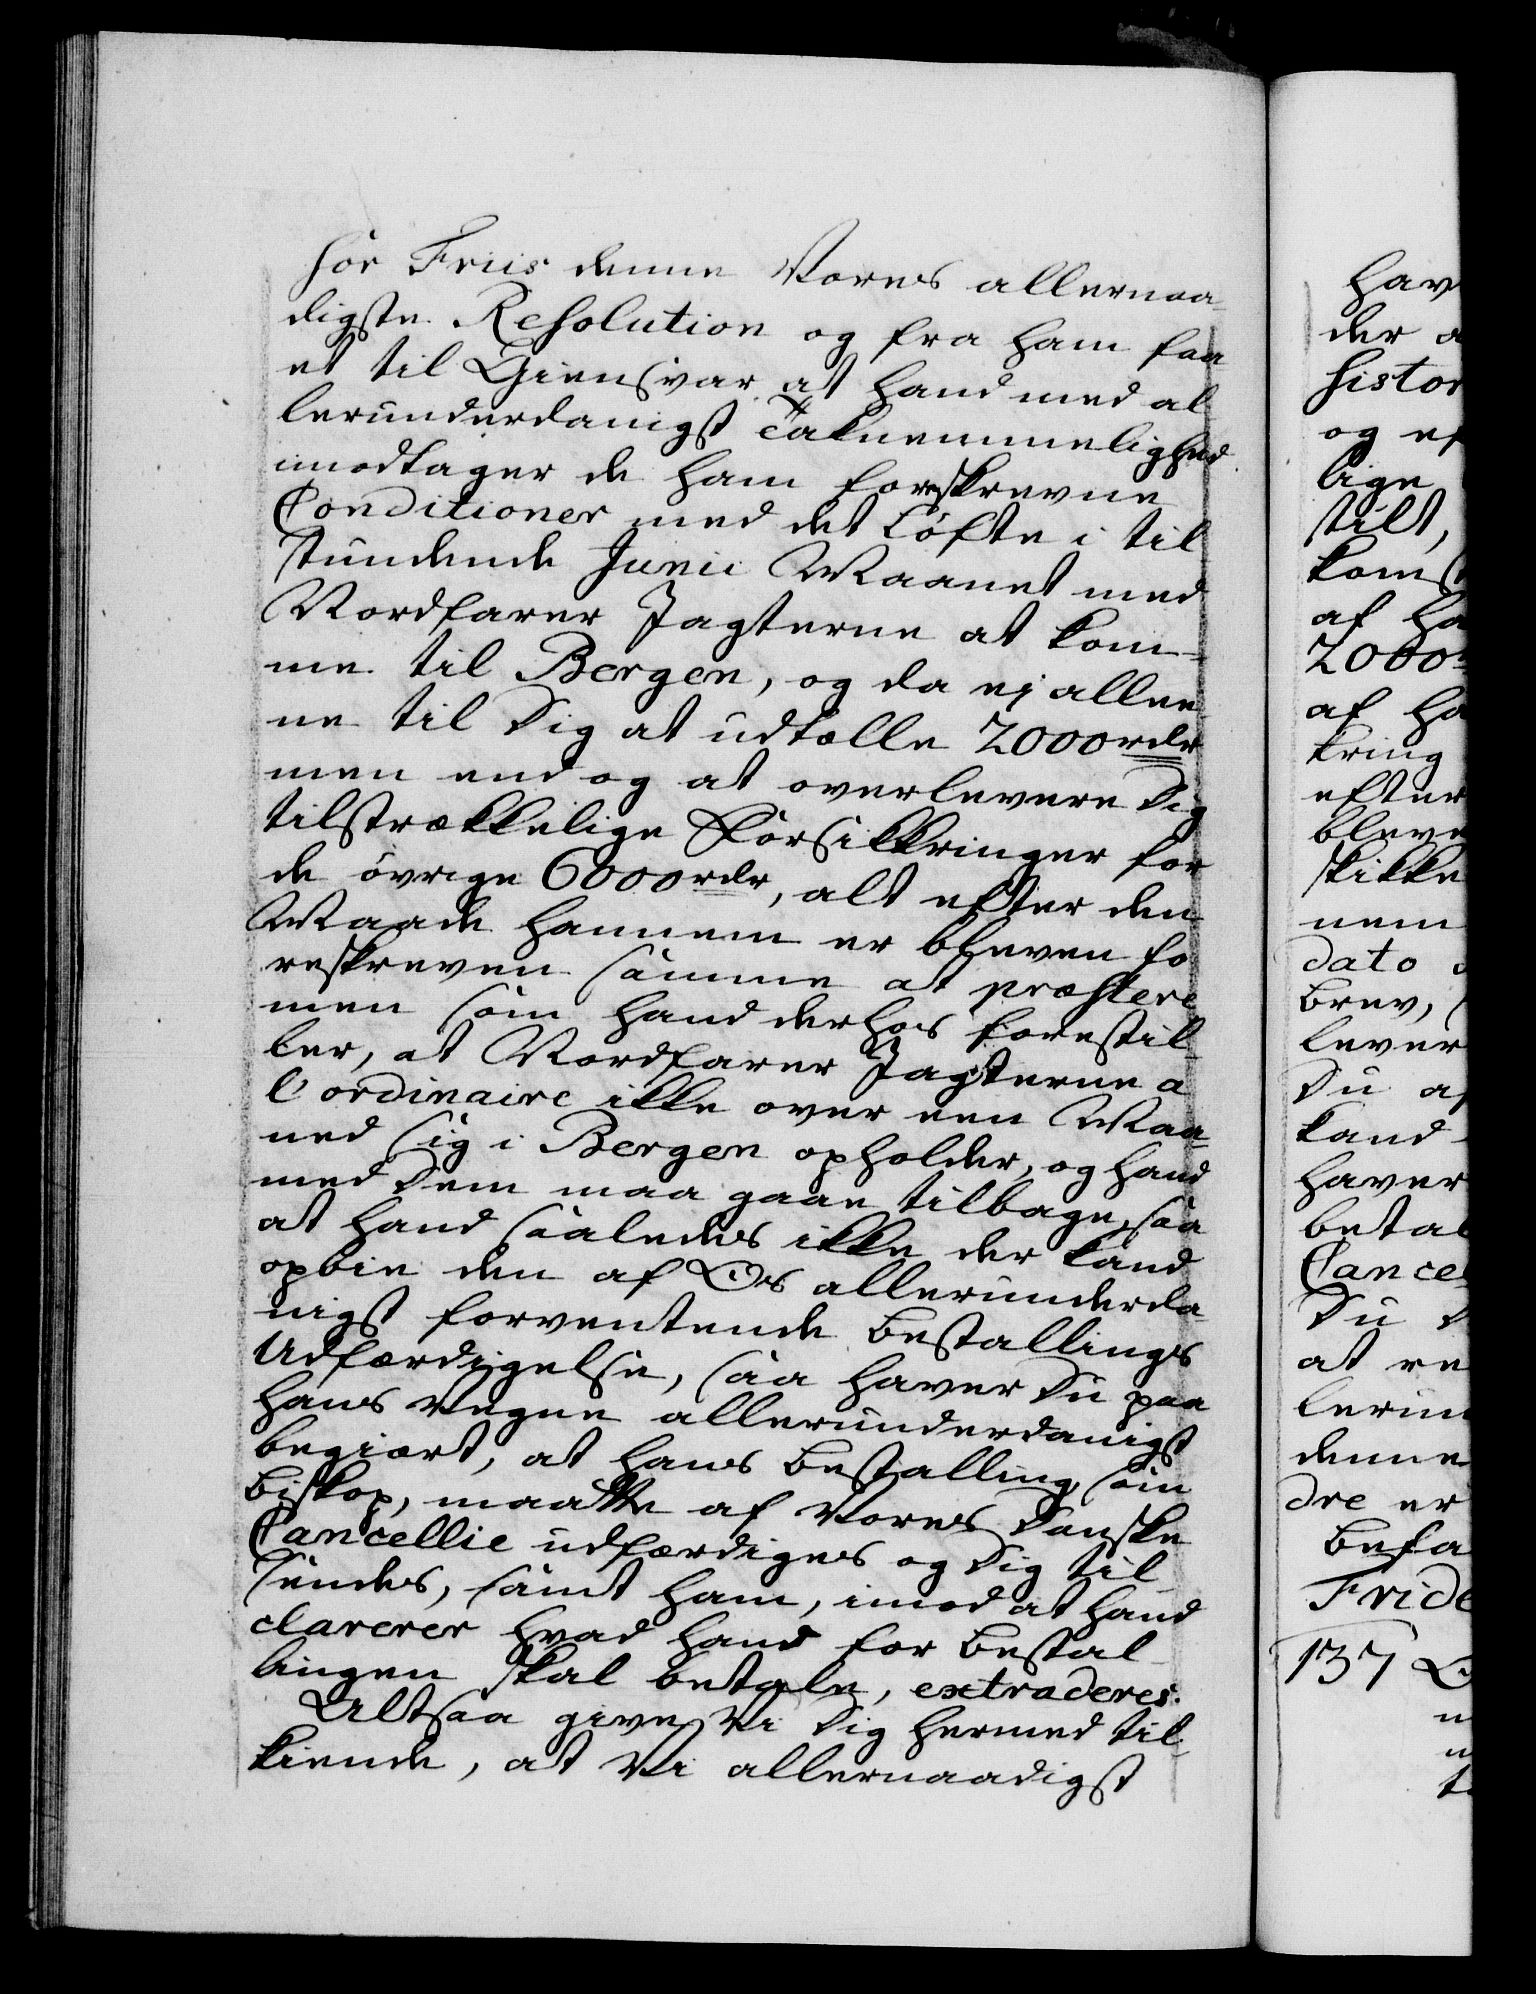 sor Friis denne Vores allernaa-
digste Resolution og fra ham faa-
et til Giensvar, at hand med al-
lerunderdanigst Taknemmelighed
imodtager de ham foreskrevne
Conditioner med det Løfte i til-
stundende Junii Maanet med
Nordfarer Jagterne at kom-
me til Bergen, og da ej allee-
ne til Dig at udtælle 2000 rdr
men end og at overlevere Dig
tilstrækkelige Forsikkringer for
de øvrige 6000 rdr, alt efter den
Maade hannem er bleven fo-
reskreven samme at præstere
men som hand derhos forestil-
ler, at Nordfarer Jagterne a
l'ordinaire ikke over een Maa-
ned sig i Bergen opholder, og hand
med dem maa gaae tilbage, saa
at hand saaledes ikke der kand
opbie den af Os allerunderda-
nigst forventende Bestallings
Udfærdigelse, saa haver Du paa
hans Vegne allerunderdanigst
begiært, at hans Bestalling som
Biskop, maatte af Vores Danske
Cancellie udfærdiges og Dig til-
sendes, samt ham, imod at hand
clarerer hvad hand for Bestal-
lingen skal betale, extraderes.
Altsaa give Vi Dig hermed til-
kiende, at Vi allernaadigst
hav
der a
histor
og ef
lige
stilt,
koms
af ha
2000
af ha
kring
efter
bleve
skikke
nem
dato
Brev,
lever
Du af
kand
haver
betal
Cancel
Du D
at re
lerun
denne
dre er
Befa
Fride
137 O